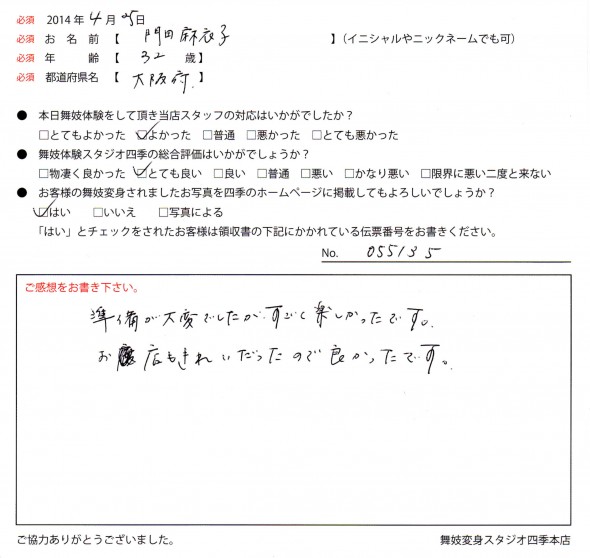 必須 2014年4月25日
必須 お名前【 門田麻衣子 】(イニシャルやニックネームでも可)
必須 年齢【 32 歳】
必須 都道府県名【 大阪府 】
● 本日舞妓体験をして頂き当店スタッフの対応はいかがでしたか?
□とてもよかった ☑よかった □普通 □悪かった □とても悪かった
● 舞妓体験スタジオ四季の総合評価はいかがでしょうか?
□物凄く良かった ☑とても良い □良い □普通 □悪い □かなり悪い □限界に悪い二度と来ない
● お客様の舞妓変身されましたお写真を四季のホームページに掲載してもよろしいでしょうか?
☑はい □いいえ □写真による
「はい」とチェックをされたお客様は領収書の下記にかかれている伝票番号をお書きください。
No. 055135
ご感想をお書き下さい。
準備が大変でしたがすごく楽しかったです。
お店もきれいだったので良かったです。
ご協力ありがとうございました。 舞妓変身スタジオ四季本店